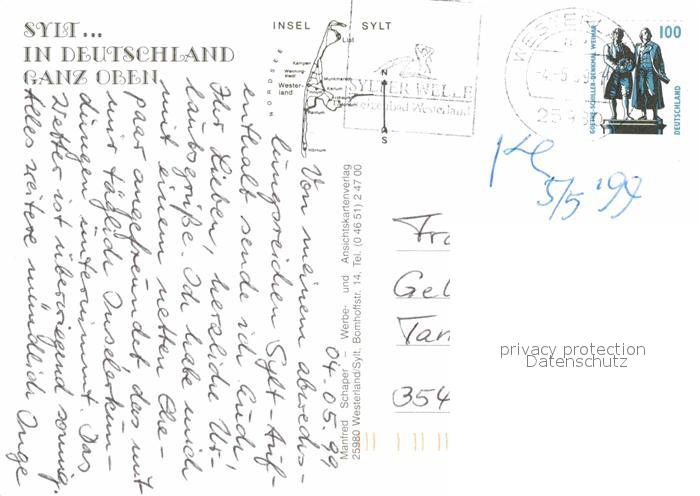 SYLT...
IN DEUTSCHLAND
GANZ OBEN
INSEL SYLT
NORDSEE
List
Kampen
Wenning-
stedt
Wester-
land
Munkmarsch
Keitum
Rantum
Hörnum
N
S
SYLTER WELLE
Freizeitbad Westerland
WESTERLAND
4.-5.99
25980
100
GOETHE-SCHILLER-DENKMAL WEIMAR
DEUTSCHLAND
5/5 '99
04.05.99
Von meinem abwechs-
lungsreichen Sylt-Auf-
enthalt sende ich Euch,
Ihr Lieben, herzliche Ur-
laubsgrüße. Ich habe mich
mit einem netten Ehe-
paar angefreundet, das mit
mir täglich Inselerkun-
dungen unternimmt. Das
Wetter ist überwiegend sonnig.
Alles weitere mündlich Inge
Manfred Schaper – Werbe- und Ansichtskartenverlag
25980 Westerland/Sylt, Bomhoffstr. 14, Tel. (0 46 51) 2 47 00
Fra
Gel
Tan
354
privacy protection
Datenschutz